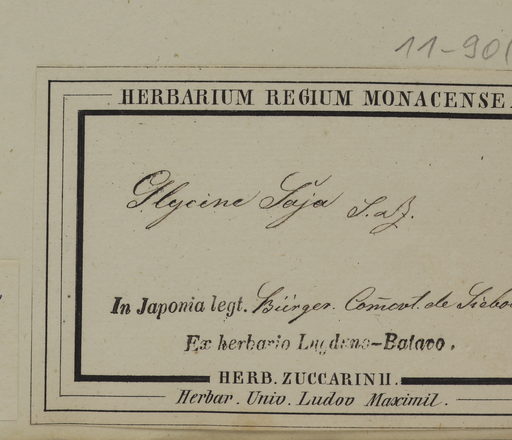 11-90
HERBARIUM REGIUM MONACENSE.
Glycine Soja S. a Z.
In Japonia legt. Bürger. Com̃evt. de Siebo
Ex herbario Lugduno-Batavo.
HERB. ZUCCARINII.
Herbar. Univ. Ludov Maximil.